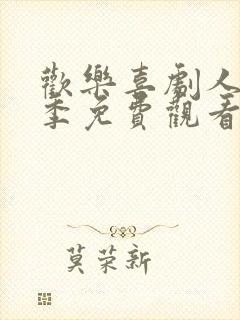 歡樂喜劇人
季免費觀看
莫荣新